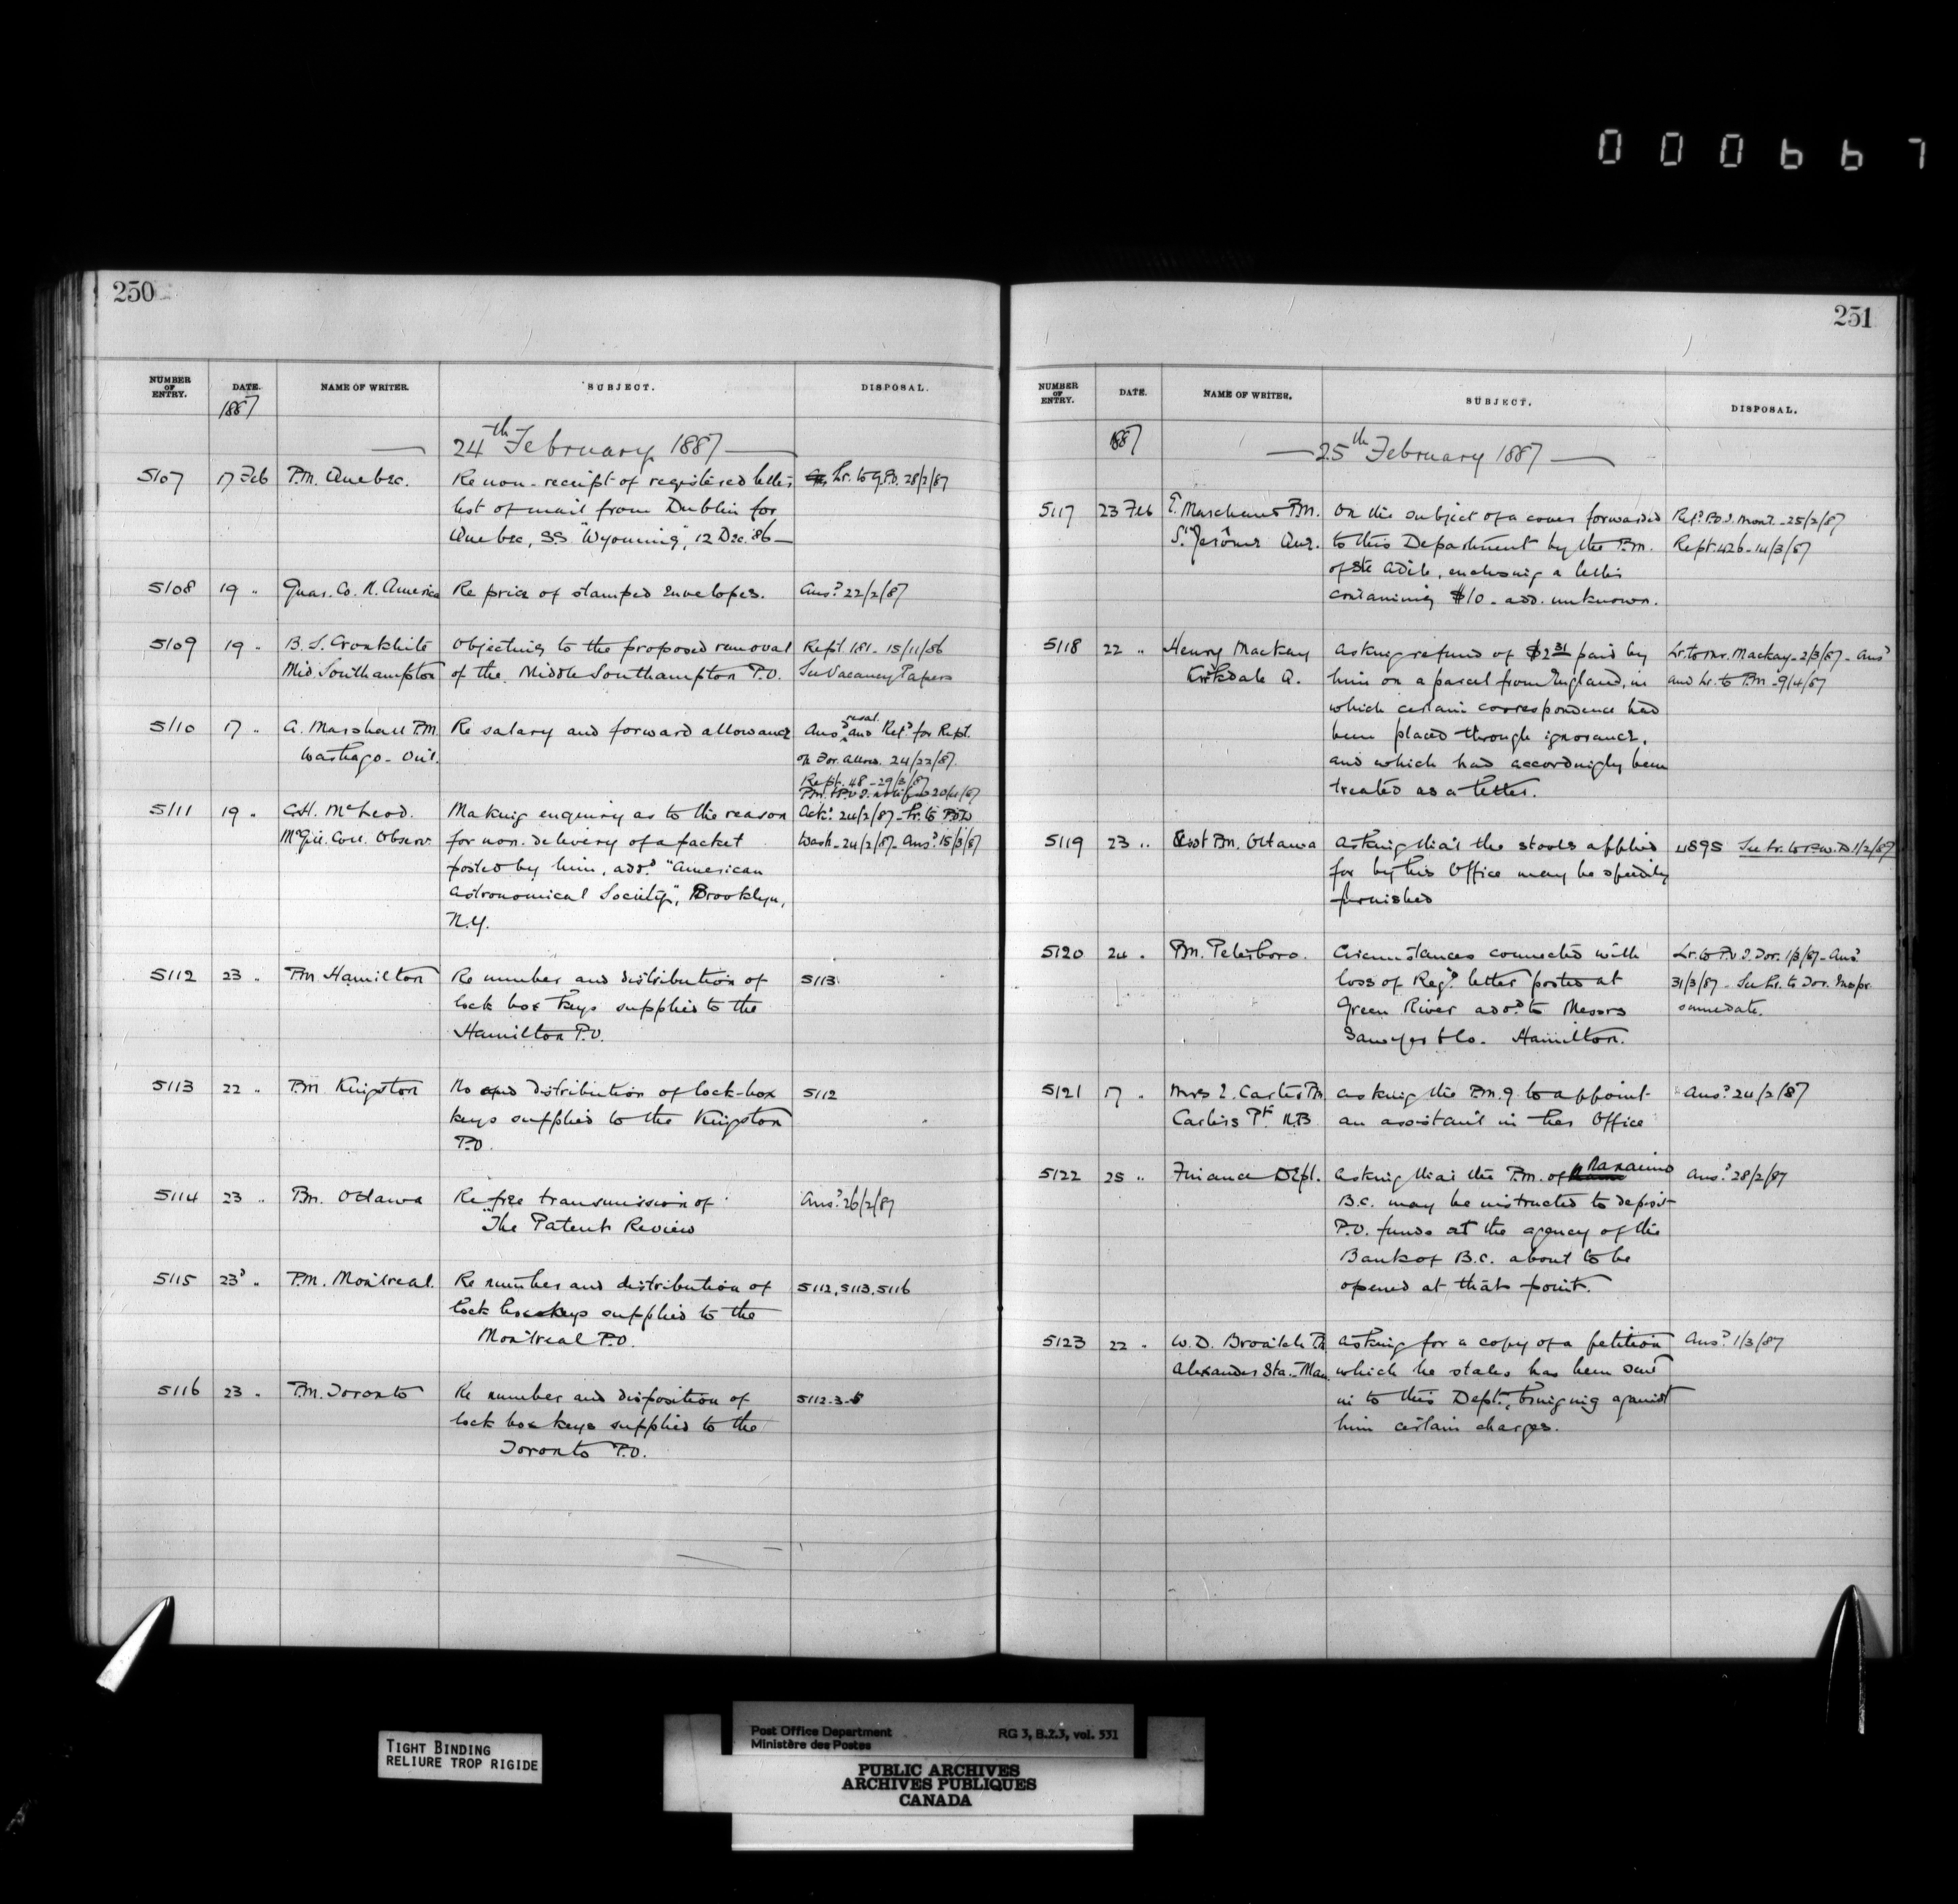 000667
250
NUMBER OF ENTRY. DATE. NAME OF WRITER. SUBJECT. DISPOSAL.
1887
24th February 1887
5107 17 Feb P.M. Quebec. Re non-receipt of registered letter Lr. to G.P.O. 28/2/87
list of mail from Dublin for
Quebec, SS "Wyoming", 12 Dec. '86
5108 19 " Guar. Co. N. America Re price of stamped envelopes. Ansd 22/2/87
5109 19 " B. S. Cronkhite Objecting to the proposed removal Rept 181. 15/11/86
Mid. Southampton of the Middle Southampton P.O. See Vacancy Papers
5110 17 " A. Marshall P.M. Re salary and forward allowance Ansd resal. and Refd for Rept.
Washago. Ont. on For. allow. 24/22/87.
Rept. 48 - 29/3/87
5111 19 " C.H. McLeod. Making enquiry as to the reason Ackd 24/2/87 - Lr. to P.O.D
McGill Coll. Observ. for non-delivery of a packet Wash - 24/2/87 - Ansd 15/3/87
posted by him, addd "American
Astronomical Society", Brooklyn,
N.Y.
5112 23 " P.M Hamilton Re number and distribution of 5113
lock box keys supplied to the
Hamilton P.O.
5113 22 " P.M Kingston No and distribution of lock-box 5112
keys supplied to the Kingston
P.O.
5114 23 " P.M. Ottawa Re free transmission of Ansd 26/2/87
"The Patent Review
5115 23 " P.M. Montreal. Re number and distribution of 5112, 5113, 5116
lock box keys supplied to the
Montreal P.O.
5116 23 " P.M. Toronto Re number and disposition of 5112-3-5
lock box keys supplied to the
Toronto P.O.
251
NUMBER OF ENTRY. DATE. NAME OF WRITER. SUBJECT. DISPOSAL.
1887
25th February 1887
5117 23 Feb Marchand P.M. On the subject of a cover forwarded Refd P.O.I. Mont. - 25/2/87
St. Jerome Que. to this Department by the P.M. Rept. 426 - 14/3/87
of Ste Adele, enclosing a letter
containing $10 - add. unknown.
5118 22 " Henry Mackay Asking refund of $2 31 paid by Lr. to Mr. Mackay - 2/3/87 - Ansd
Kirkdale Q. him on a parcel from England, in and Lr. to P.M - 9/4/87
which certain correspondence had
been placed through ignorance,
and which had accordingly been
treated as a letter.
5119 23 " Asst P.M. Ottawa Asking that the stools applied 4895 See Lr. to P.W.D 1/2/87
for by his Office may be speedily
furnished
5120 24 " P.M. Peterboro. Circumstances connected with Lr. to P.O.I. Tor. 1/3/87 - Ansd
loss of Regd letter posted at 31/3/87 - See Lr. to Tor. Inspr.
Green River addd to Messrs samedate.
Sawyer & Co. Hamilton.
5121 17 " Mrs E. Carter P.M Asking the P.M.G. to appoint Ansd 24/2/87
Carters Pt. N.B. an assistant in her Office
5122 25 " Finance Dept. Asking that the P.M. of Nanaimo Ansd 28/2/87
B.C. may be instructed to deposit
P.O. funds at the agency of the
Bank of B.C. about to be
opened at that point.
5123 22 " W.D. P.M Asking for a copy of a petition Ansd 1/3/87
Alexander Sta. - Man. which he states has been sent
in to this Dept., bringing against
him certain charges.
TIGHT BINDING
RELIURE TROP RIGIDE
Post Office Department RG 3, B.2.3, vol. 531
Ministère des Postes
PUBLIC ARCHIVES
ARCHIVES PUBLIQUES
CANADA